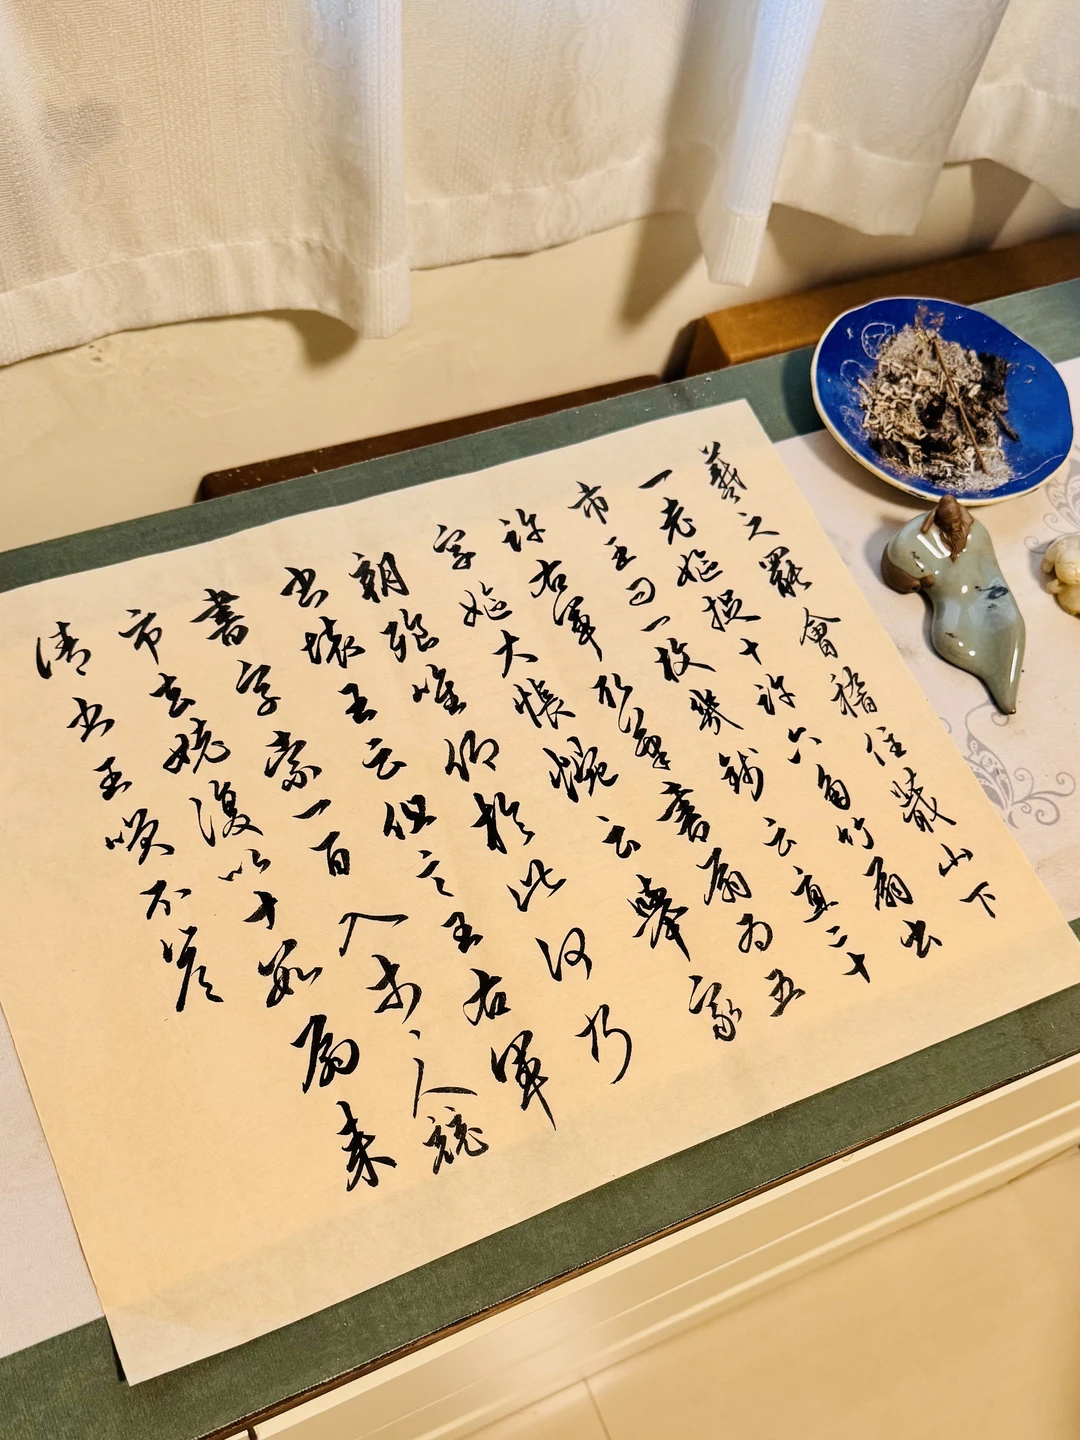 羲之罷會稽住蕺山下
一老嫗捉十許六角竹扇出
市王曰一枚幾錢云直二十
許右軍取筆書扇為五
字嫗大悵惋云舉家
朝飡唯仰於此何乃
書壞王云但言王右軍
書字索一百入市〻人競
市去姥復以十數扇来
請書王咲不答